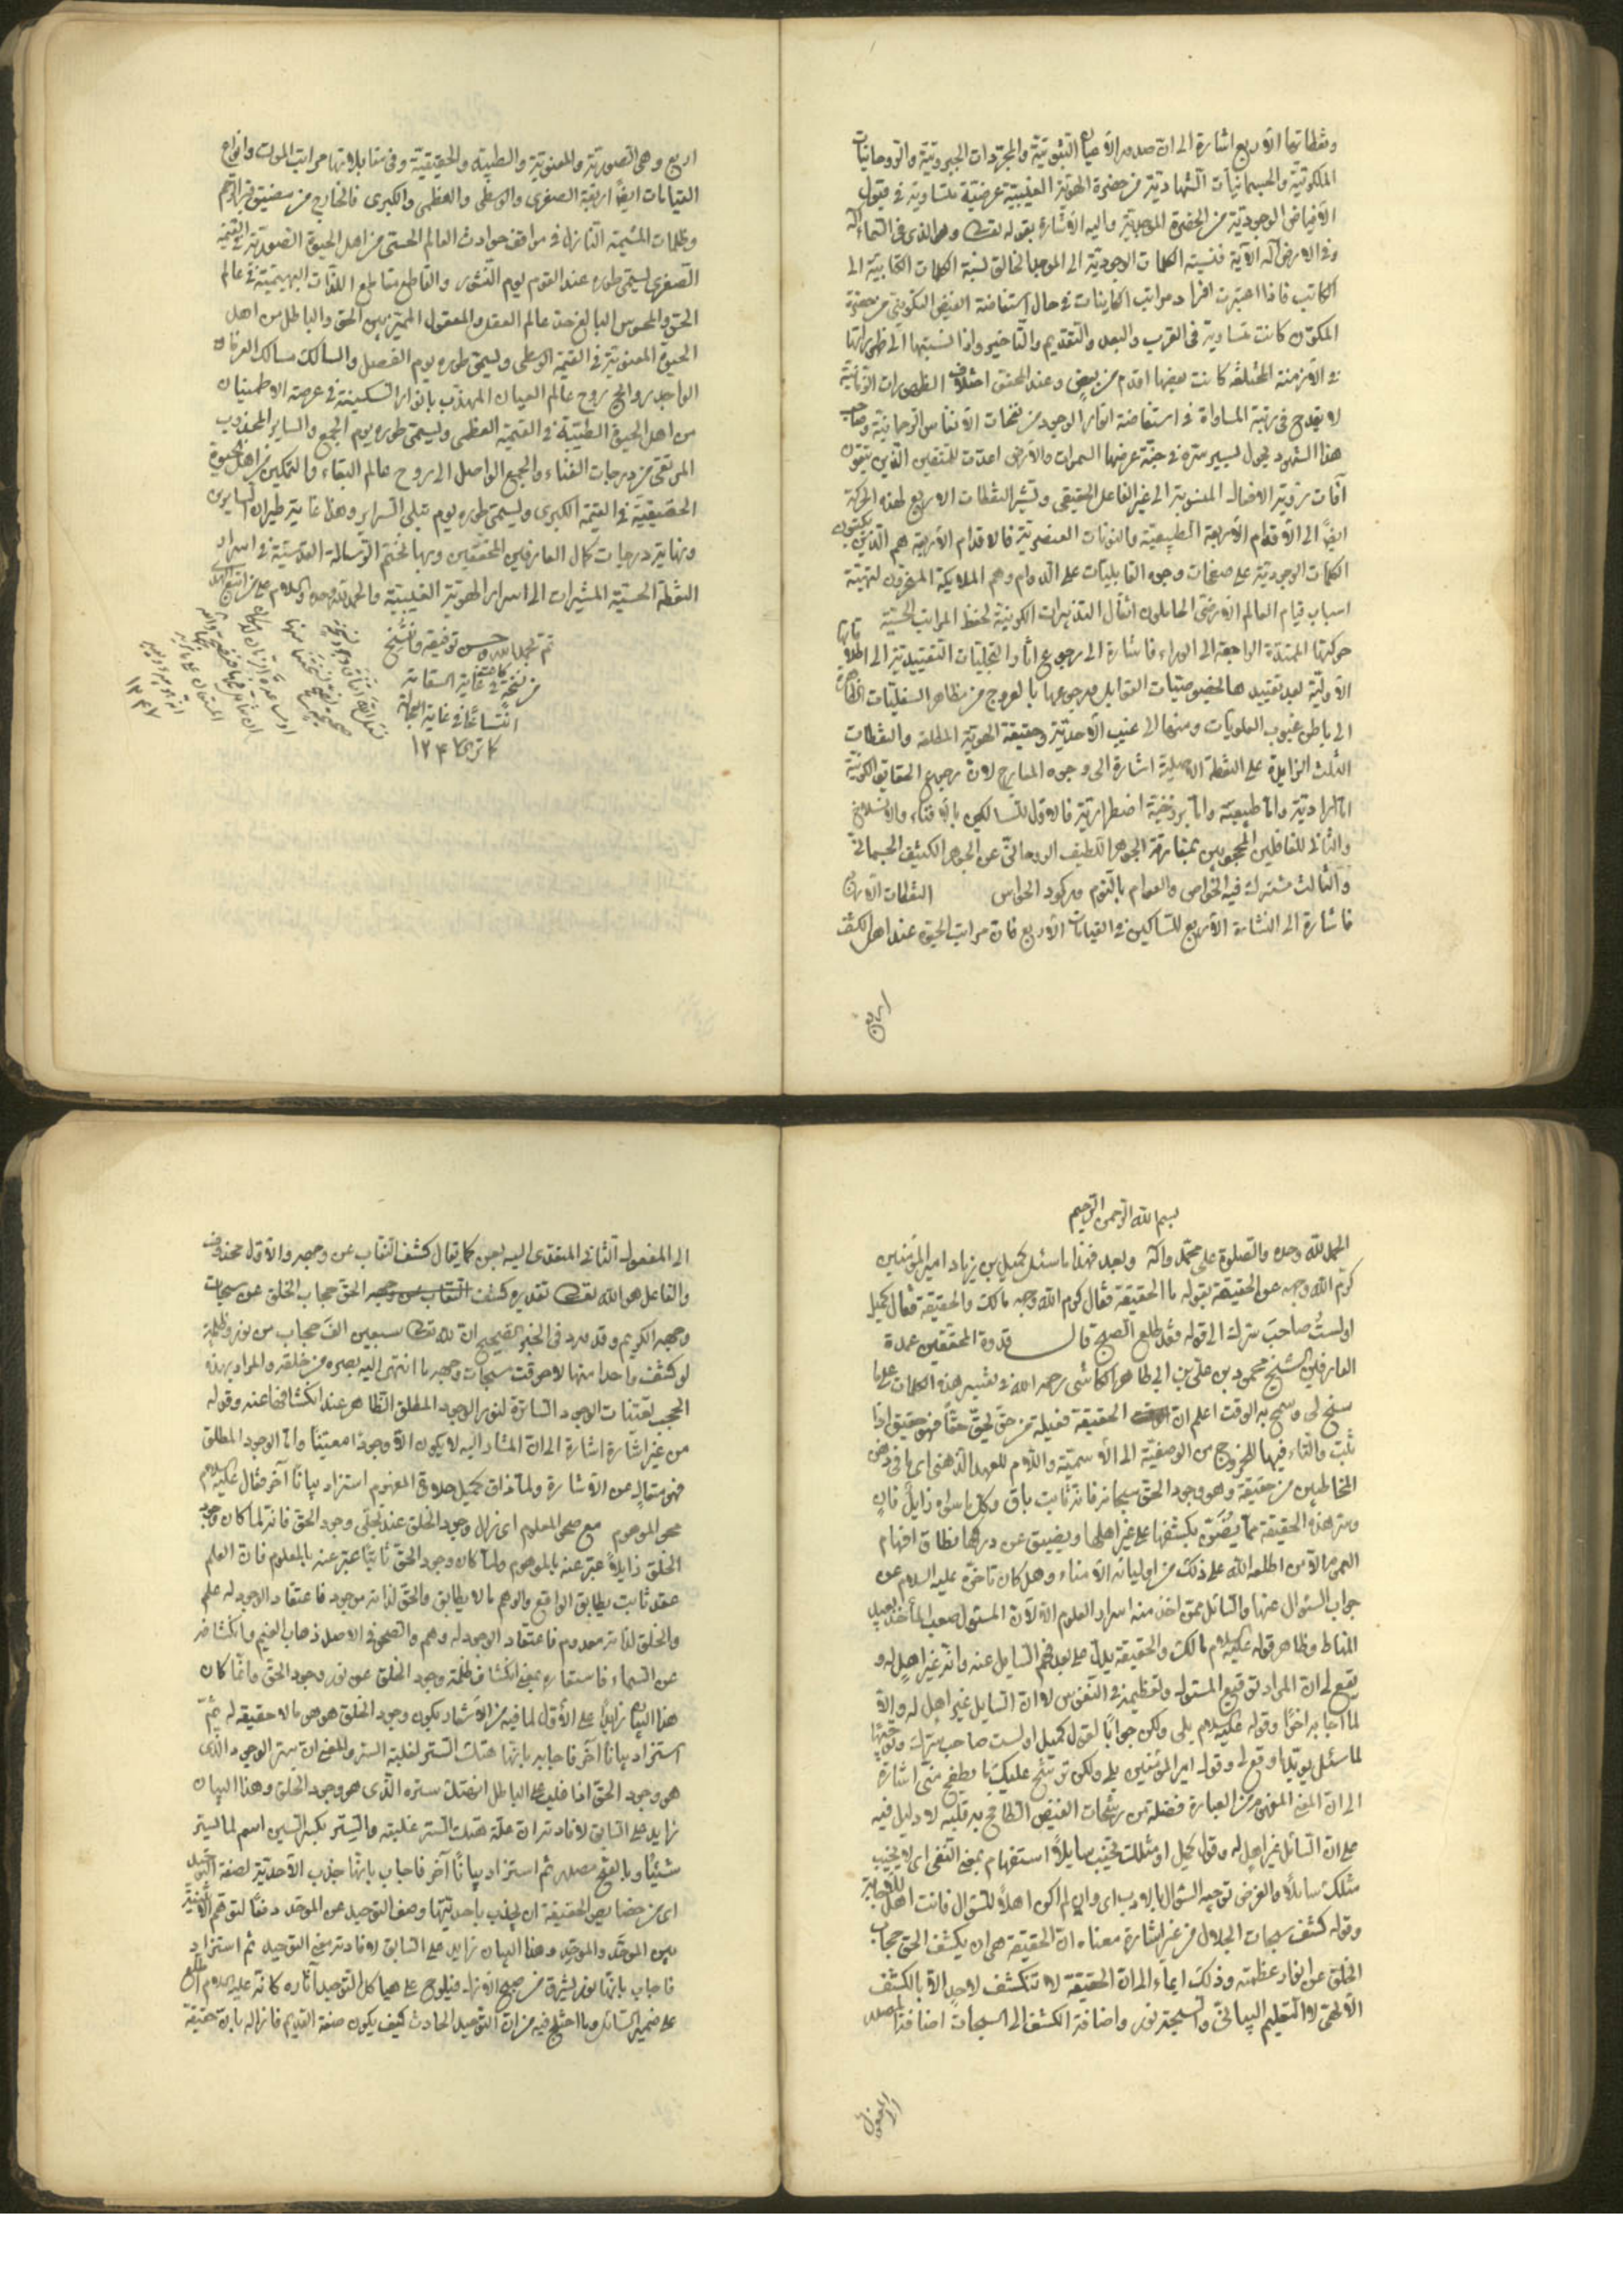 ونقطاتها الأربع اشارة الى ان صدور الأعيان الثبوتية والمجردات الجبروتية والروحانيات
الملكوتية والجسمانيات الشهادية من حضرة الهوية الغيبية عرضية متساوية في قبول
الأفياض الوجودية من الحضرة الموجدية واليه الأشارة بقوله تعالى وهو الذى في السماء اله
وفي الارض اله الآية فنسبة الكلمات الوجودية الى الموجد الخالق نسبة الكلمات الكتابية الى
الكاتب فاذا اعتبرت افراد مراتب الكاينات في حال استفاضة الفيض التكويني من حضرة
المكون كانت متساوية في القرب والبعد والتقديم والتاخير واذا نسبتها الى ظهوراتها
في الأزمنة المختلفة كانت بعضها اقدم من بعض وعند المحقق اختلاف الظهورات الزمانية
لا يقدح في رتبة المساواة في استفاضة انوار الوجود من نفحات الأنفاس الرحمانية وصاحب
هذا الشهود يجول بسير سره في جنة عرضها السموات والأرض اعدت للمتقين الذين يتقون
آفات رؤية الافعال المنسوبة الى غير الفاعل الحقيقى وتشير النقطات الاربع لهذه الحركة
ايضًا الى الأقدام الأربعة الطبيعية والنونات العنصرية فالاقدام الأربعة هم الذين يكتبون
الكلمات الوجودية على صفحات وجوه القابليات على الدوام وهم الملايكة لتهيئة
اسباب قيام العالم الارضى الحاملون اثقال التدبيرات الكونية لحفظ المراتب الحسية
حركتها الممتدة الراجعة الى الوراء فاشارة الى رجوع والتجليات التقييدية الى
الأولية بعد تقييدها بخصوصيات القوابل ورجوعها بالعروج من مظاهر السفليات
الى باطن غيوب العلويات ومنها الى غيب الأحدية وحقيقة الهوية المطلقة والنقطات
الثلث الزايدة على النقطة الاصلية اشارة الى وجوه المعارج لان رجوع الحقايق الكونية
اما ارادية واما طبيعية واما برزخية اضطرارية فالاول للسالكين بالافناء والانسلاخ
والثاني للغافلين المحجوبين بمفارقة الجوهر اللطيف الروحانى عن الجوهر الكثيف الجسمانى
والثالث مشترك فيه الخواص والعوام بالنوم وركود الحواس النقطات الأربع
فاشارة الى النشات الأربع للسالكين في القيامات الأربع فان مراتب الحيوة عند اهل الكشف
اربع وهى الصورية والمعنوية والطيبة والحقيقية وفي مقابلاتها مراتب الموت وانواع
القيامات ايضًا اربعة الصغرى والوسطى والعظمى والكبرى فالخارج من مضيق
وظلمات المشيمة النازل في مواقف حوادث العالم الحسى من اهل الحيوة الصورية في القيمة
الصغرى ليسمى طوره عند القوم يوم النشور والقاطع مقاطع اللذات البهيمية في عالم
الحق والمحوس البالغ حد عالم العقل والمعقول المميز بين الحق والباطل من اهل
الحيوة المعنوية في القيمة الوسطى ويسمى طوره يوم الفصل والسالك مسالك العرفان
الواجد روايح روح عالم العيان المهذب بانوار السكينة في عرصة الاطمينان
من اهل الحيوة الطيبة في القيمة العظمى ويسمى طوره يوم الجمع والساير المجذوب
المرتقى من درجات الفناء والجمع الواصل الى روح عالم البقاء والتمكين من اهل الحيوة
الحقيقية في القيمة الكبرى وليسمى طوره يوم تبلى السراير وهذا غاية طيران السايرين
ونهاية درجات كمال العارفين المحققين وبها نختم الرسالة القدسية في اسرار
النقطة الحسية المشيرات الى اسرار الهوية الغيبية والحمد لله وحده والسلام على من اتبع الهدى
تم بحمد الله وحسن توفيقه
من نسخة كانت في غاية السقامة
في غاية العجالة
١٢٤
١٢٤٧
بسم الله الرحمن الرحيم
الحمد لله وحده والصلوة على محمد وآله وبعد فهذا ما سئل كميل بن زياد امير المؤمنين
كرم الله وجهه عن الحقيقة بقوله ما الحقيقة فقال كرم الله وجهه مالك والحقيقة فقال كميل
اولستُ صاحب سرك الى قوله فقد طلع الصبح قال قدوة المحققين عمدة
العارفين الشيخ محمود بن على بن ابي طاهر الكاشى رحمه الله في تفسير هذه الكلمات على ما
سنح لى وسمح به الوقت اعلم ان الحقيقة فعيلة من حق يحق حقًا فهو حقيق اذا
ثبت والتاء فيها للخروج من الوصفية الى الأسمية واللام للعهد الذهنى اى ما في ذهن
المخاطبين من حقيقة وهو وجود الحق سبحانه فانه ثابت باق وكل ما سواه زايل فان
وسر هذه الحقيقة مما يضن بكشفها على غير اهلها ويضيق عن دركها نطاق افهام
العموم الا من اطلعه الله على ذلك من اوليائه الأمناء وهل كان تاخره عليه السلام عن
جواب السؤال عنها والسائل ممن اخذ منه اسرار العلوم الا لأن المسئول صعب المأخذ بعيد
المناط وظاهر قوله عليه السلام مالك والحقيقة يدل على بعد فهم السايل عنه وانه غير اهل له و
يقع لى ان المراد توقيع المسئول وتعظيمه في النفس لا ان السايل غير اهل له والا
لما اجابه اخرًا وقوله عليه السلام بلى ولكن جوابًا لقول كميل اولست صاحب سرك
لما سئل وقوله امير المؤمنين بلى ولكن ترشح عليك ما يطفح منى اشارة
الى ان المعنى من العبارة فضلة من رشحات الفيض الطافح به قلبه لا دليل فيه
على ان السائل غير اهل له وقول كميل اومثلك يخيب سايلًا استفهام بمعنى النفى اى لا يخيب
مثلك سائلًا والغرض توجيه السؤال بالادب اى وان لم اكن اهلًا للسؤال فانت اهل للاجابة
وقوله كشف سبحات الجلال من غير اشارة معناه ان الحقيقة هى ان يكشف الحق حجاب
الخلق عن انوار عظمته وذلك ايماء الى ان الحقيقة لا تنكشف لاحد الا بالكشف
الألهى لا التعليم البيانى والسبحة نور واضافة الكشف الى السبحات اضافة المصدر
الى المفعول
الى المفعول الثانى المتعدى اليه بعن كما يقال كشف النقاب عن وجهه والأول محذوف
والفاعل هو الله تعالى تقديره كشف الحق حجاب الخلق عن سبحات
وجهه الكريم وقد ورد في الخبر الصحيح ان لله تعالى سبعين الف حجاب من نور وظلمة
لو كشف واحدا منها لاحرقت سبحات وجهه ما انتهى اليه بصره من خلقه والمراد بهذه
الحجب تعينات الوجود الساترة لنور الوجود المطلق الظاهر عند انكشافها عنه وقوله
من غير اشارة اشارة الى ان المشار اليه لا يكون الا وجودًا معينًا واما الوجود المطلق
فهو متعال عن الاشارة ولما ذاق كميل حلاوة المفهوم استزاد بيانًا آخر فقال عليه السلام
محو الموهوم مع صحو المعلوم اى زال وجود الخلق عند تجلى وجود الحق فانه لما كان وجود
الخلق زايلًا عبر عنه بالموهوم ولما كان وجود الحق ثابتًا عبر عنه بالمعلوم فان العلم
عقد ثابت يطابق الواقع والوهم ما لا يطابق والحق لذاته موجود فاعتقاد الوجود له علم
والخلق لذاته معدوم فاعتقاد الوجود له وهم والصحو في الاصل ذهاب الغيم وانكشافه
عن السماء فاستعاره بمعنى انكشاف ظلمة وجود الخلق عن نور وجود الحق وانما كان
هذا البيان زايدًا على الأول لما فيه من الأشعار بكون وجود الخلق هو هو ما لا حقيقة له ثم
استزاد بيانًا آخر فاجابه بانها هتك الستر لغلبة السر والمعنى ان سر الوجود الذى
هو وجود الحق اذا غلب على الباطل انهتك ستره الذى هو وجود الخلق وهذا البيان
زايد على السابق لافادته ان علة هتك الستر غلبته والستر بكسر السين اسم لما يستر
شيئًا وبالفتح مصدر ثم استزاد بيانًا آخر فاجاب بانها جذب الأحدية لصفة التوحيد
اى من خصايص الحقيقة ان يجذب باحديتها وصف التوحيد عن الموحد دفعًا لتوهم الأثنينية
بين الموحد والموحد وهذا البيان زايد على السابق لافادته معنى التوحيد ثم استزاد
فاجاب بانها نور يشرق من صبح الازل فيلوح على هياكل التوحيد آثاره كانه عليه السلام اطلع
على ضمير السائل وما اختلج فيه من ان التوحيد الحادث كيف يكون صفة القديم فازاله بان حقيقة